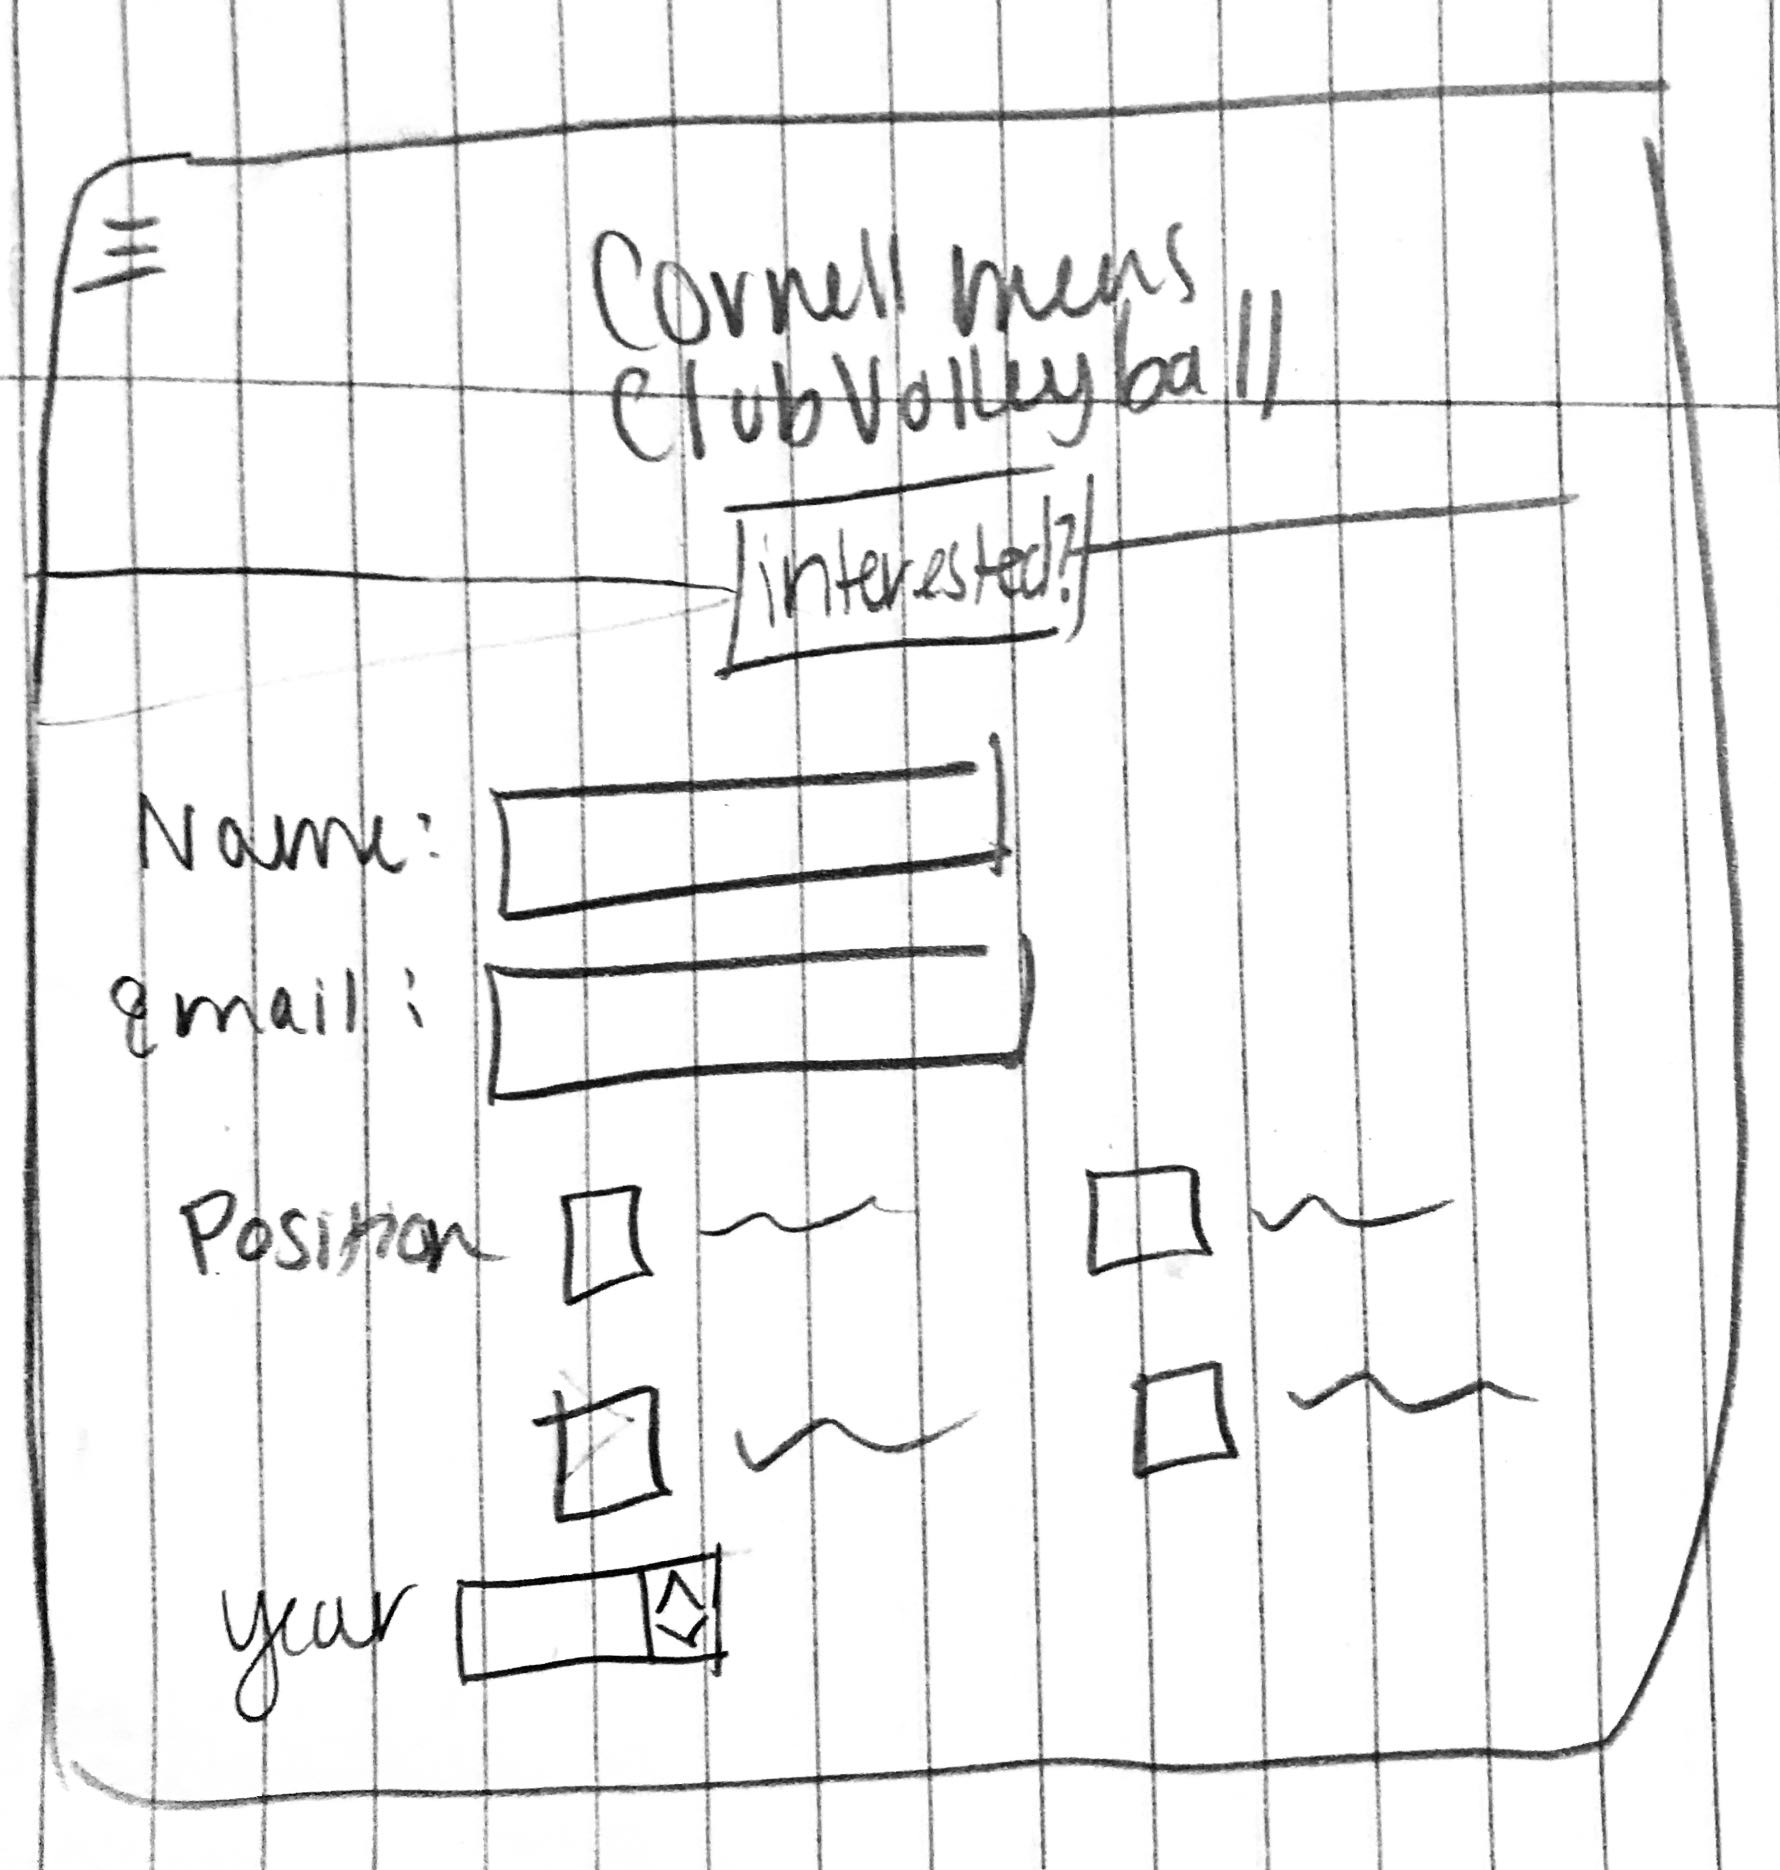 Cornell mens
Club Volleyball
interested?
Name:
email:
Position
year